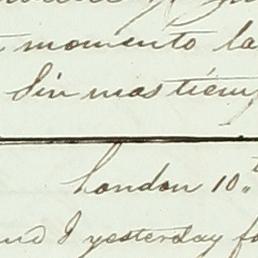 momento la
Sin mas tiem
London 10
I yesterday